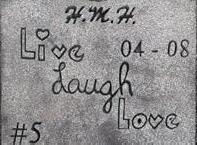 H.M.H.
Live 04-08
Laugh
Love
#5